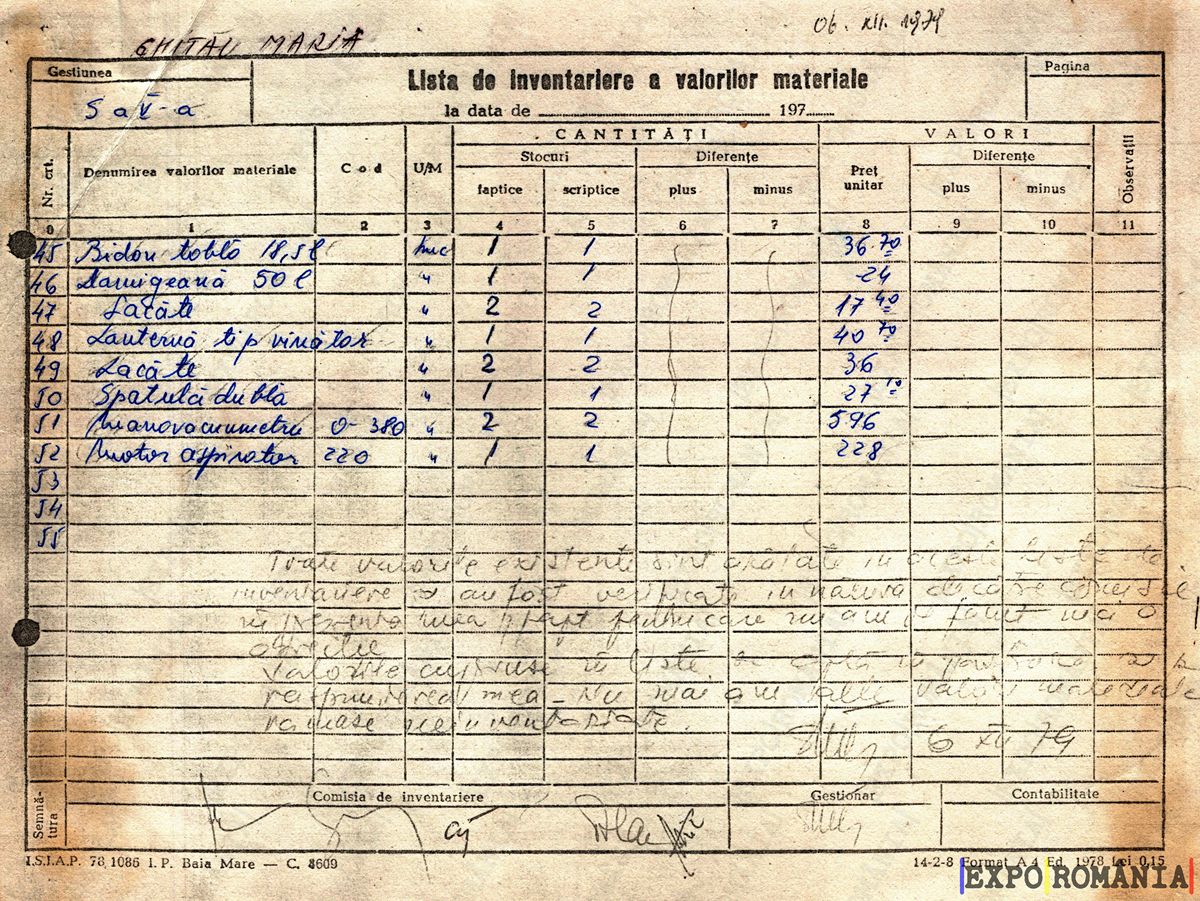 06. XII. 1979
GHITĂU MARIA
Gestiunea
S a V-a
Lista de inventariere a valorilor materiale
la data de 197
Pagina
Nr. crt.
Denumirea valorilor materiale
Cod
U/M
CANTITĂȚI
Stocuri
faptice
scriptice
Diferențe
plus
minus
VALORI
Preț unitar
Diferențe
plus
minus
Observații
0 1 2 3 4 5 6 7 8 9 10 11
45 Bidon tablă 18,5 l buc 1 1 36 70
46 Damigeană 50 l " 1 1 24
47 Lacăte " 2 2 17 40
48 Lanternă tip vinător " 1 1 40 70
49 Lacăte " 2 2 36
50 Spatulă dublă " 1 1 27 10
51 Manovacuumetru 0-380 " 2 2 596
52 Motor aspirator 220 " 1 1 228
53
54
55
Toate valorile existente sint arătate in aceste liste
inventariere și au fost verificate in natura de către
in prezenta mea fapt pentru care nu am de făcut nici o
Valorile cuprinse in liste se află in
raspunderea mea - Nu mai am alte valori materiale
ramase neinventariate.
6 XII 79
Semnătura
Comisia de inventariere
Gestionar
Contabilitate
I.S.I.A.P. 78 1086 I. P. Baia Mare — C. 3609
14-2-8 Format A 4 Ed. 1978 Lei 0,15
EXPO ROMÂNIA